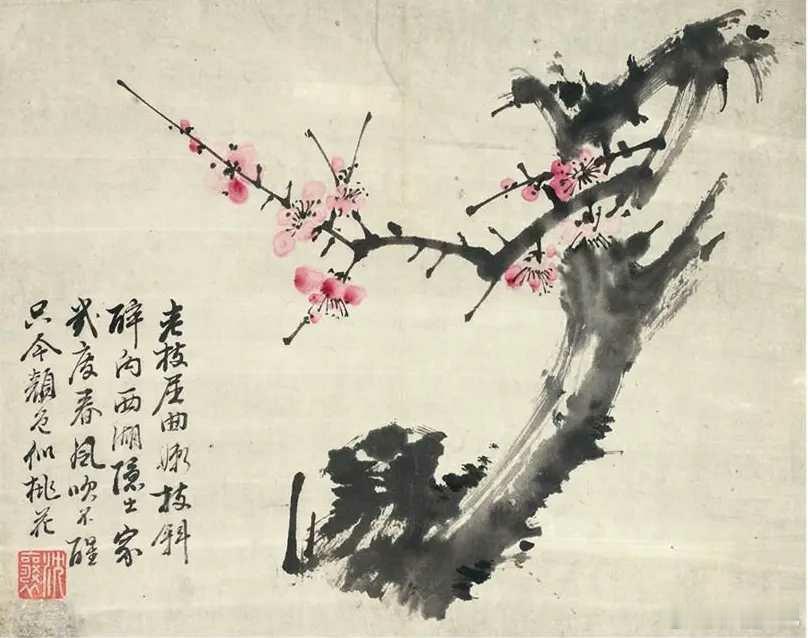 老枝屈曲嫩枝斜
醉向西湖隐士家
几度春风吹不醒
只今颜色似桃花